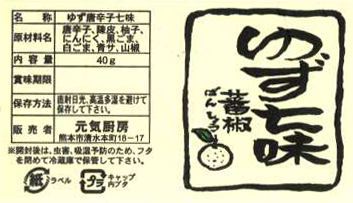 名称 ゆず唐辛子七味
原材料名 唐辛子、陳皮、柚子、
にんにく、黒ごま、
白ごま、青サ、山椒
内容量 40g
賞味期限
保存方法 直射日光、高温多湿を避けて
保存して下さい。
販売者 元気厨房
熊本市清水本町18-17
※開封後は、虫害、吸湿予防のため、フタ
を閉めて冷蔵庫で保管して下さい。
紙 ラベル
プラ キャップ
内フタ
ゆず七味
蕃椒
ばんしょう